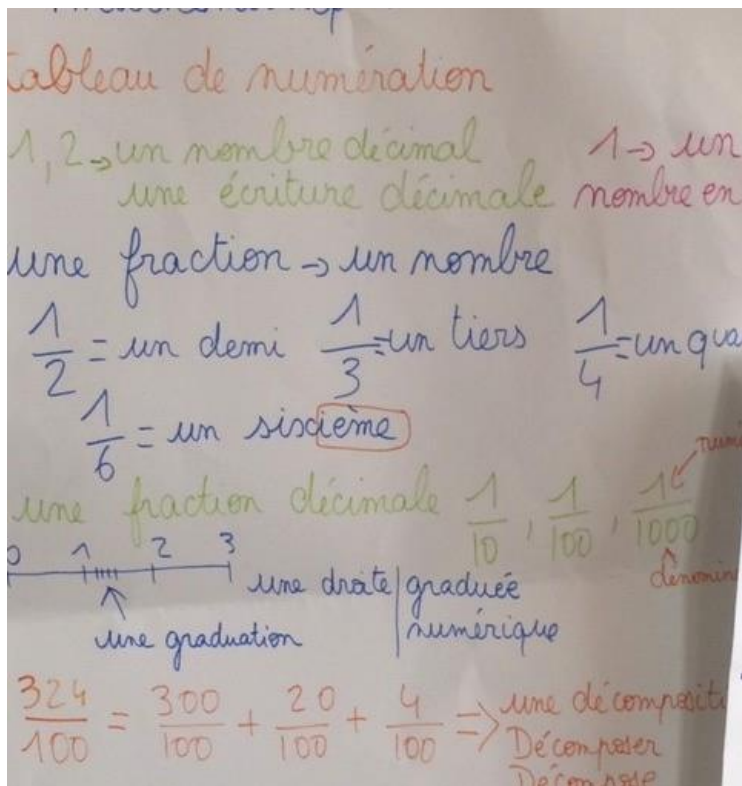 tableau de numération
1,2 → un nombre décimal 1 → un
une écriture décimale nombre en
une fraction → un nombre
1/2 = un demi 1/3 = un tiers 1/4 = un qua
1/6 = un sixième
une fraction décimale 1/10, 1/100, 1/1000
0 1 2 3
une droite graduée
numérique
une graduation
324/100 = 300/100 + 20/100 + 4/100 => une décompositi
Décomposer
Décompose